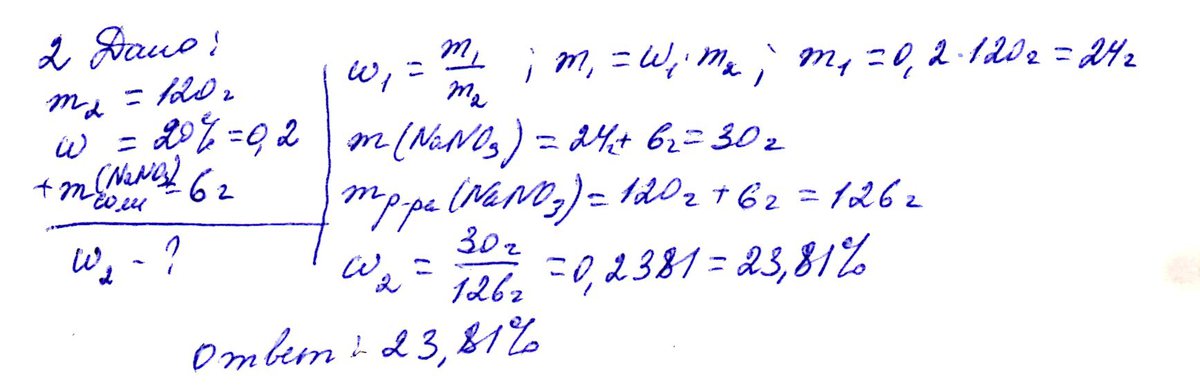 2 Дано:
m₂ = 120г
ω = 20% = 0,2
+ m соли (NaNO₃) = 6г
ω₂ - ?
ω₁ = m₁/m₂ ; m₁ = ω₁·m₂ ; m₁ = 0,2·120г = 24г
m(NaNO₃) = 24г + 6г = 30г
m р-ра (NaNO₃) = 120г + 6г = 126г
ω₂ = 30г/126г = 0,2381 = 23,81%
Ответ: 23,81%